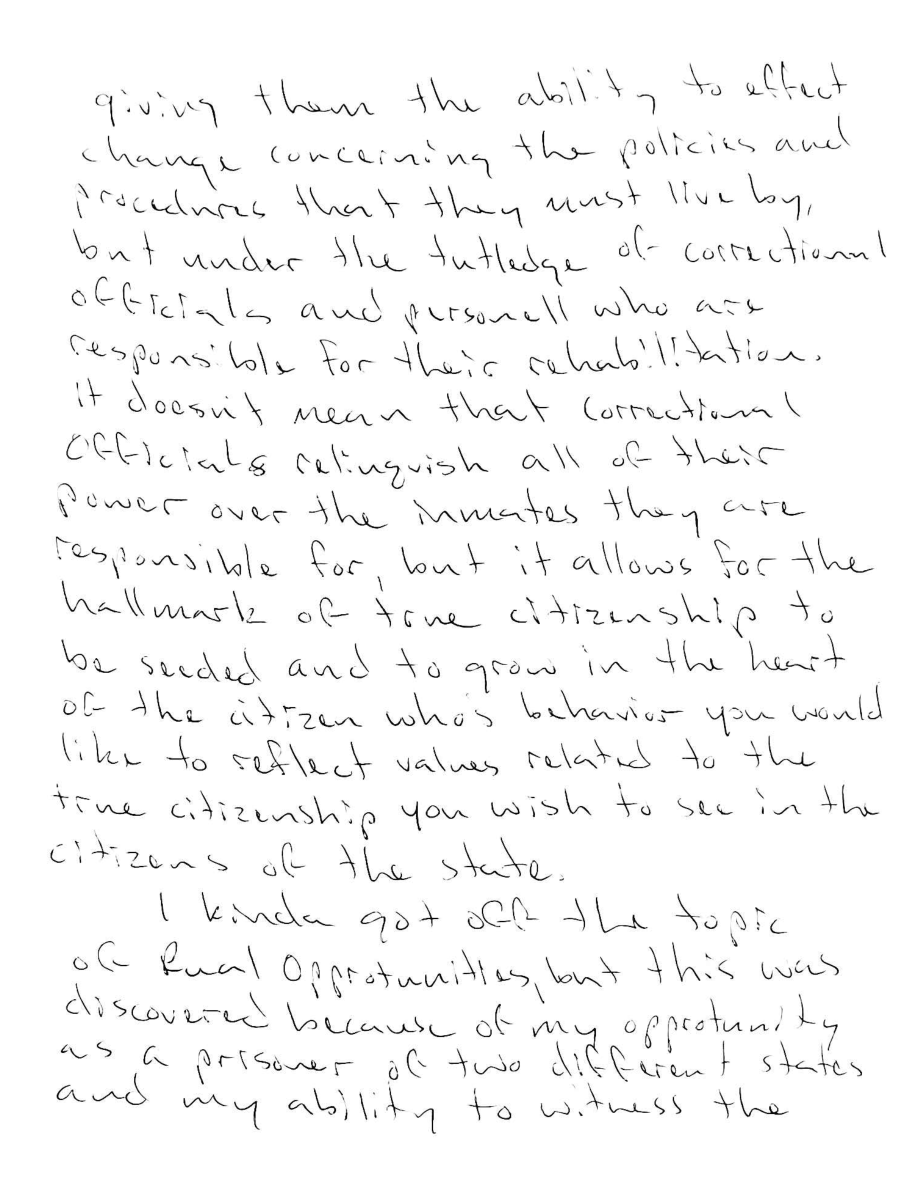 giving them the ability to effect
change concerning the policies and
procedures that they must live by,
but under the tutledge of correctional
officials and personell who are
responsible for their rehabilitation.
it doesn't mean that correctional
officials relinquish all of their
power over the inmates they are
responsible for, but it allows for the
hallmark of true citizenship to
be seeded and to grow in the heart
of the citizen who's behavior you would
like to reflect values related to the
true citizenship you wish to see in the
citizens of the state.
I kinda got off the topic
of Rual Opprotunities, but this was
discovered because of my opprotunity
as a prisoner of two different states
and my ability to witness the